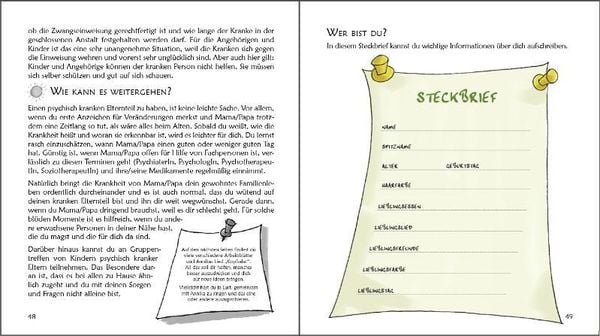 ob die Zwangseinweisung gerechtfertigt ist und wie lange der Kranke in der
geschlossenen Anstalt festgehalten werden darf. Für die Angehörigen und
Kinder ist das eine sehr unangenehme Situation, weil die Kranken sich gegen
die Einweisung wehren und vorerst sehr unglücklich sind. Aber auch hier gilt:
Kinder und Angehörige können der kranken Person nicht helfen. Sie müssen
sich selber schützen und gut auf sich schauen.
WIE KANN ES WEITERGEHEN?
Einen psychisch kranken Elternteil zu haben, ist keine leichte Sache. Vor allem,
wenn du erste Anzeichen für Veränderungen merkst und Mama/Papa trotz-
dem eine Zeitlang so tut, als wäre alles beim Alten. Sobald du weißt, wie die
Krankheit heißt und woran sie erkennbar ist, wird es leichter für dich. Du lernst
rasch einzuschätzen, wann Mama/Papa einen guten oder weniger guten Tag
hat. Günstig ist, wenn Mama/Papa offen für Hilfe von Fachpersonen ist, ver-
lässlich zu diesen Terminen geht (PsychiaterIn, PsychologIn, Psychotherapeu-
tIn, SoziotherapeutIn) und ihre/seine Medikamente regelmäßig einnimmt.
Natürlich bringt die Krankheit von Mama/Papa dein gewohntes Familienle-
ben ordentlich durcheinander und es ist auch normal, dass du wütend auf
deinen kranken Elternteil bist und ihn dir weit wegwünschst. Gerade dann,
wenn du Mama/Papa dringend brauchst, weil es dir schlecht geht. Für solche
blöden Momente ist es hilfreich, wenn du ande-
re erwachsene Personen in deiner Nähe hast,
die du magst und die für dich da sind.
Darüber hinaus kannst du an Gruppen-
treffen von Kindern psychisch kranker
Eltern teilnehmen. Das Besondere dar-
an ist, dass es bei allen zu Hause ähn-
lich zugeht und du mit deinen Sorgen
und Fragen nicht alleine bist.
Auf den nächsten Seiten findest du
viele verschiedene Arbeitsblätter
48
WER BIST DU?
In diesem Steckbrief kannst du wichtige Informationen über dich aufschreiben.
STECKBRIEF
NAME
SPITZNAME
ALTER GEBURTSTAG
HAARFARBE
LIEBLINGSESSEN
LIEBLINGSLIED
LIEBLINGSFREUNDE
LIEBLINGSFARBE
LIEBLINGSTAG
49